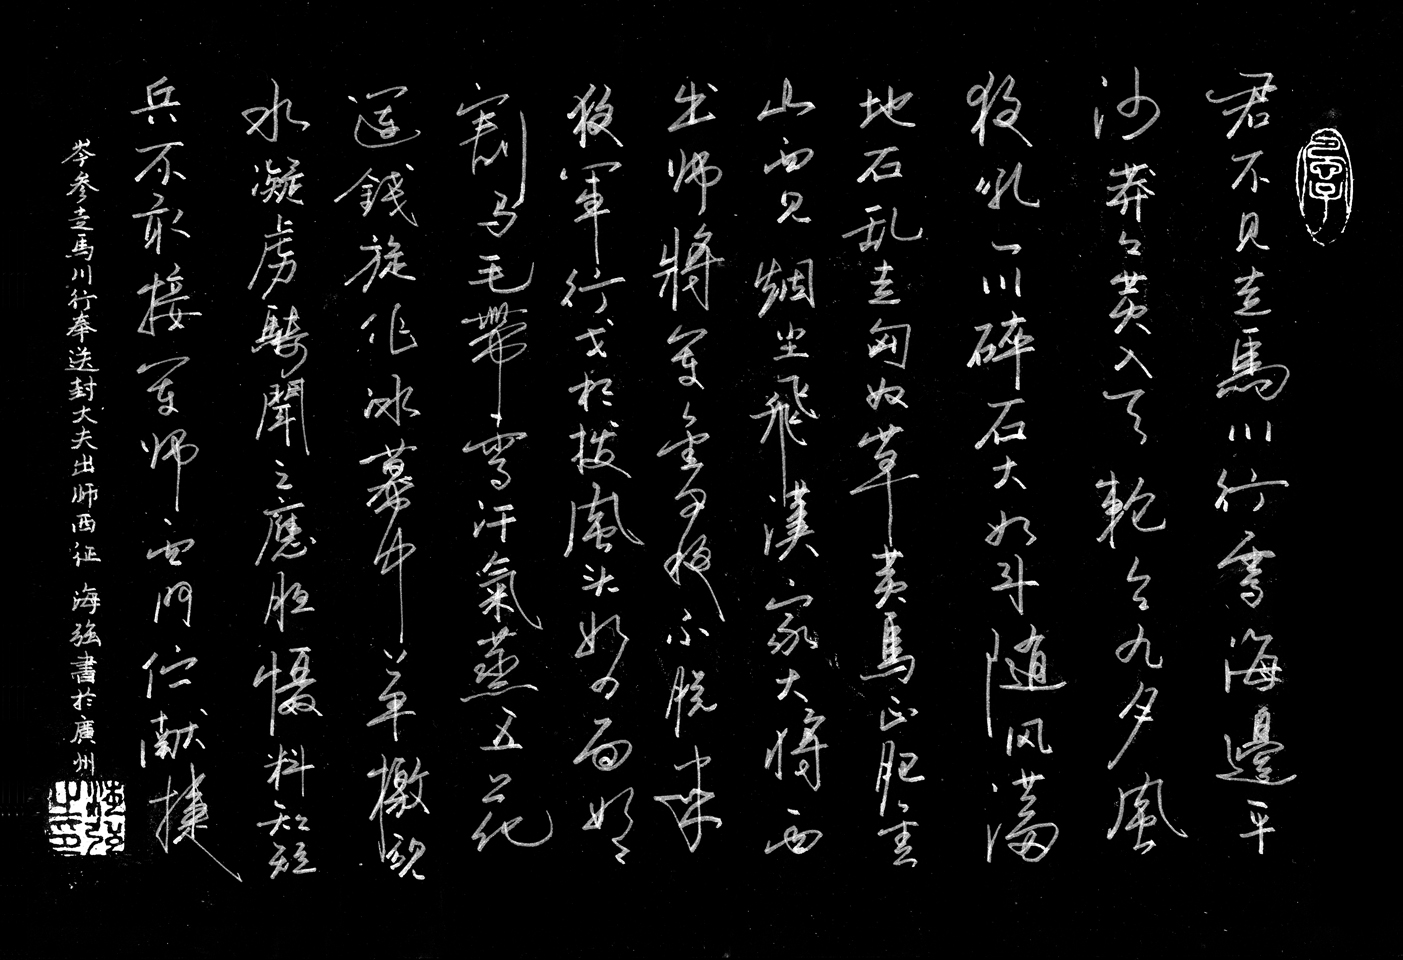 君不见走馬川行雪海邊平
沙莽々黄入天輪台九月風
夜吼一川碎石大如斗随风满
地石乱走匈奴草黄馬正肥金
山西见烟尘飛漢家大将西
出师將军金甲夜不脱半
夜軍行戈相拨風头如刀面如
割马毛帶雪汗氣蒸五花
連錢旋作冰幕中草檄砚
水凝虏騎聞之應胆慑料知短
兵不敢接车师西门伫献捷
岑参走馬川行奉送封大夫出师西征 海強書於廣州